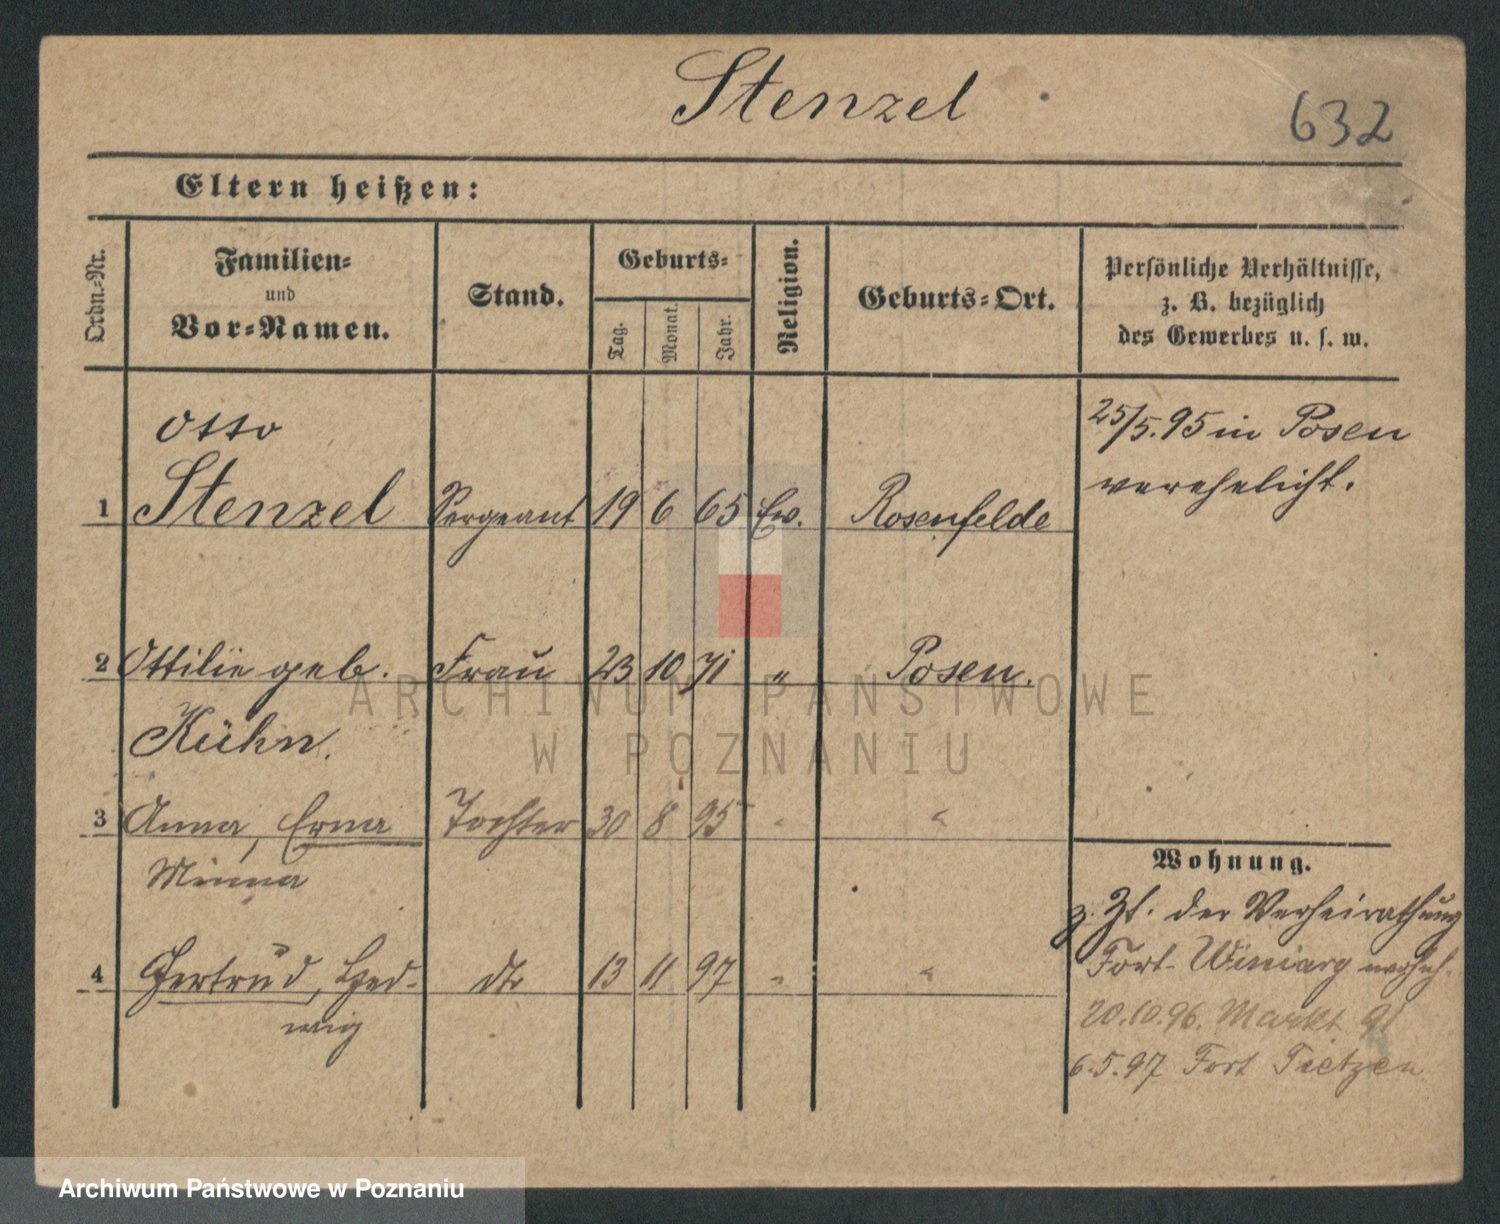 Stenzel
632
Eltern heißen:
Ordn.-Nr.
Familien-
und
Vor-Namen.
Stand.
Geburts-
Tag.
Monat.
Jahr.
Religion.
Geburts-Ort.
Persönliche Verhältnisse,
z. B. bezüglich
des Gewerbes u. s. w.
Otto
1 Stenzel Sergeant 19 6 65 Ev. Rosenfelde
25/5.95 in Posen
verehelicht.
2 Ottilie geb. Frau 23 10 71 " Posen.
Kühn.
3 Anna, Erna Tochter 30 8 95 " "
Minna
4 Gertrud, Hed- dto 13 11 97 " "
wig
Wohnung.
z. Zt. der Verheirathung
Fort Winiary wohnh.
20.10.96. Markt 91
6.5.97 Fort Tietzen
ARCHIWUM PAŃSTWOWE
W POZNANIU
Archiwum Państwowe w Poznaniu